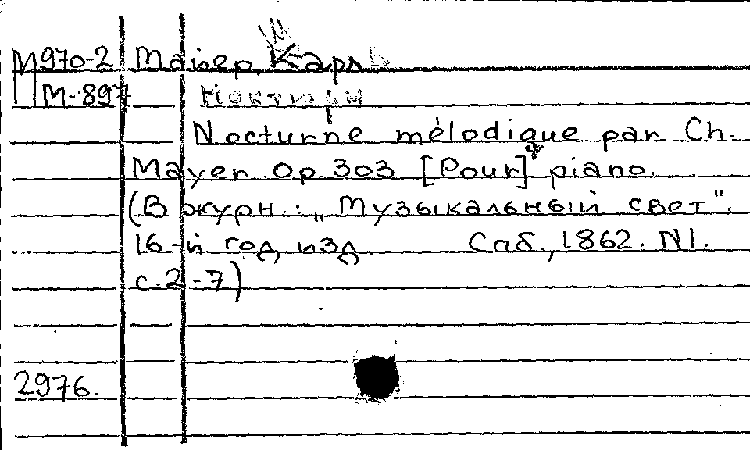 М970-2 Майер, Карл
М-897 Ноктюрн
Nocturne mélodique par Ch.
Mayer Op 303 [Pour] piano.
(В журн.: „Музыкальный свет".
16-й год изд. Спб., 1862. N1.
с. 2-7)
2976.